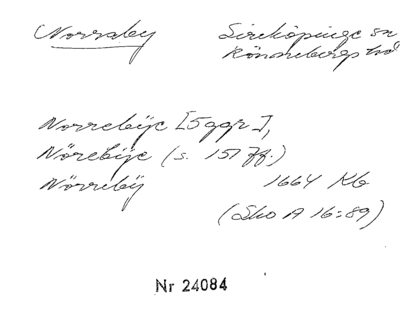 Norraby Sireköpinge sn
Rönnebergs hd
Norrebÿe [5 ggr],
Nörebÿe (s. 157 ff.)
Nörrebÿ 1664 Kb
(Sko A 16:89)
Nr 24084